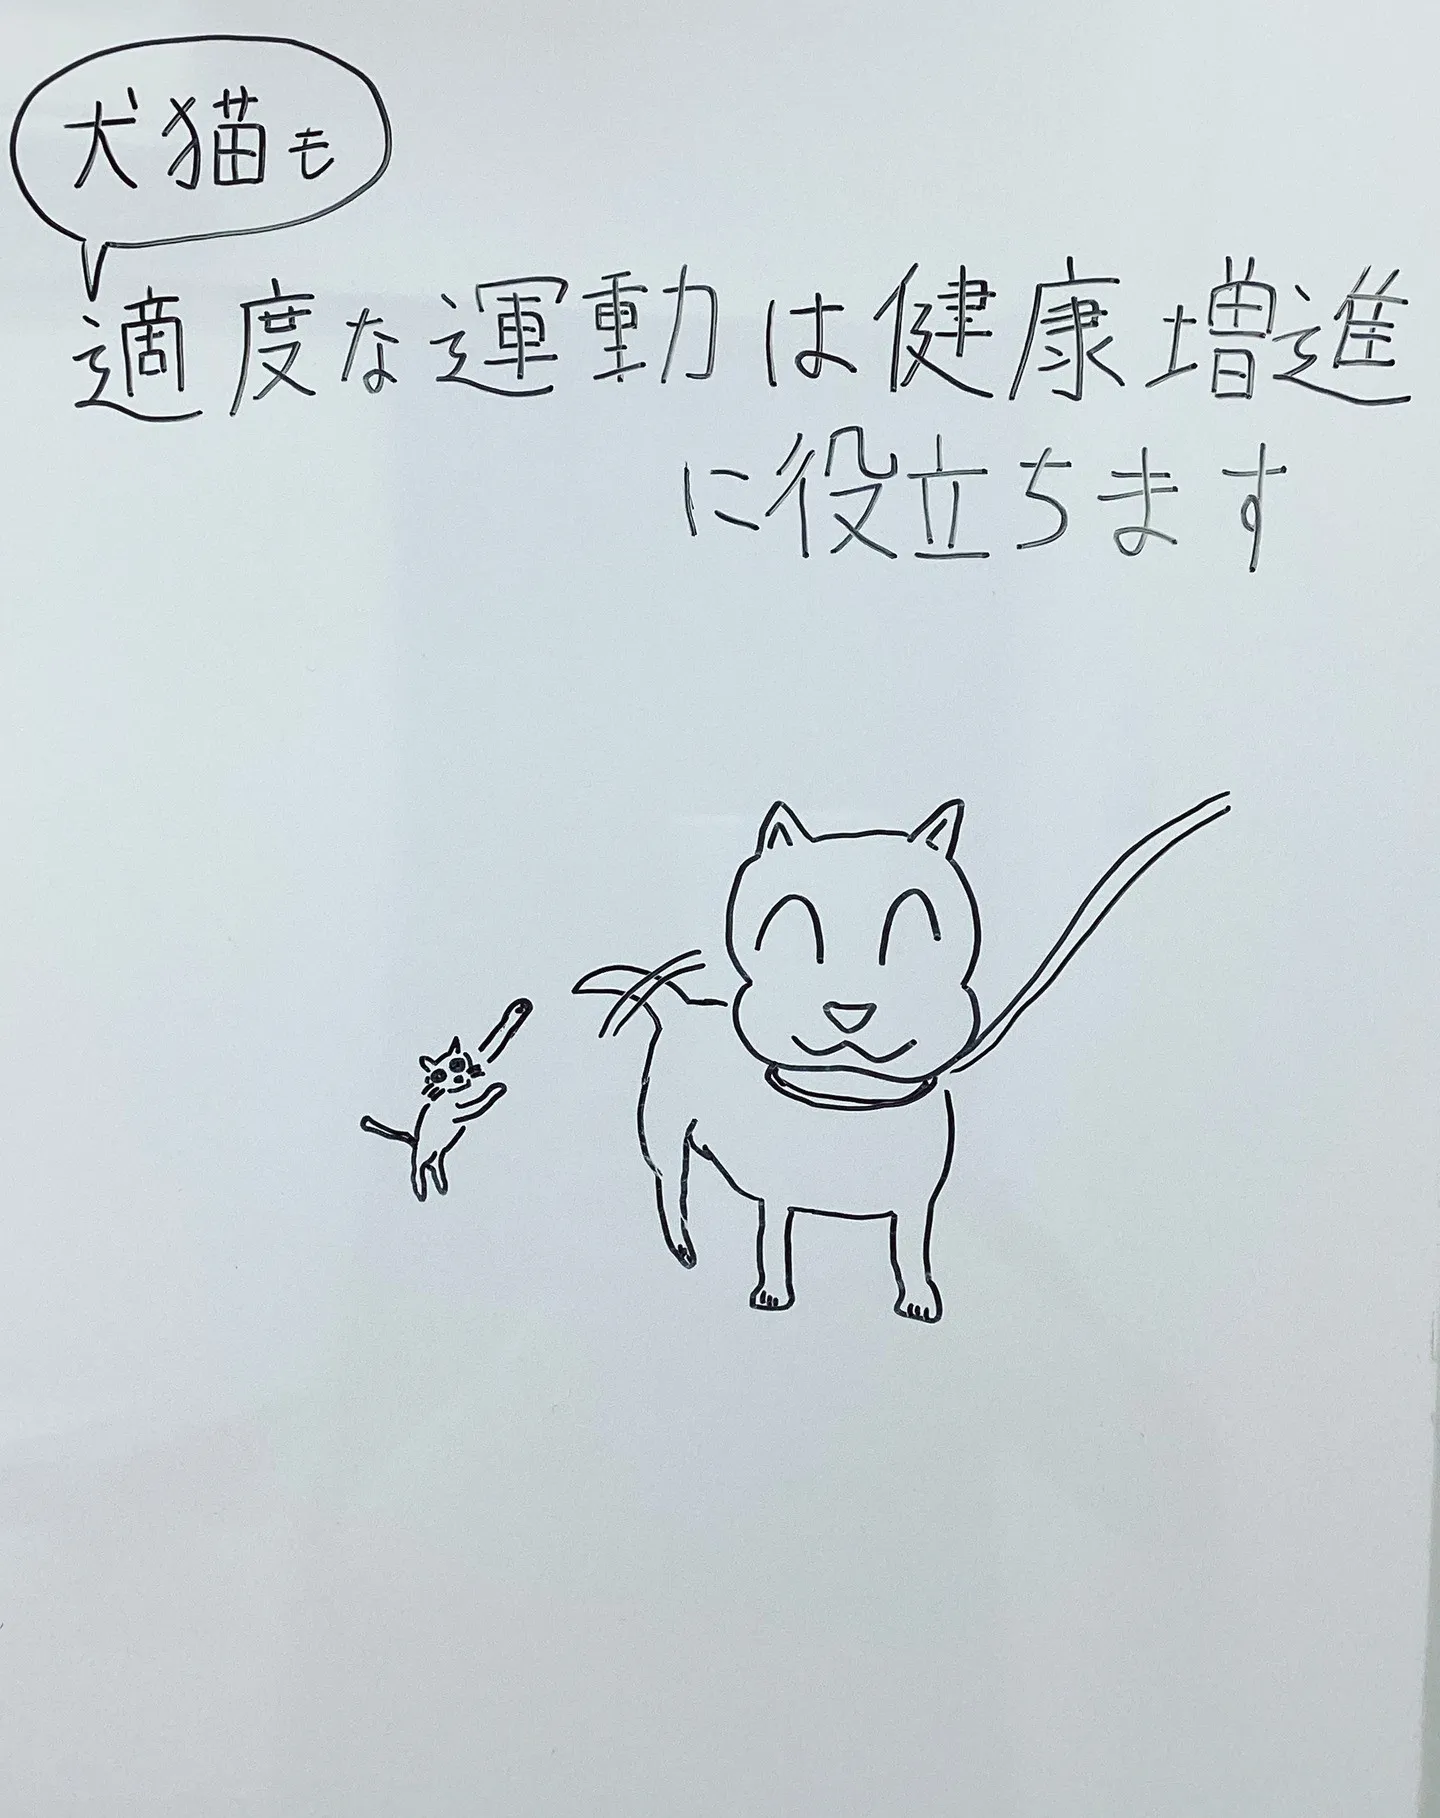 犬猫も
適度な運動は健康増進
に役立ちます